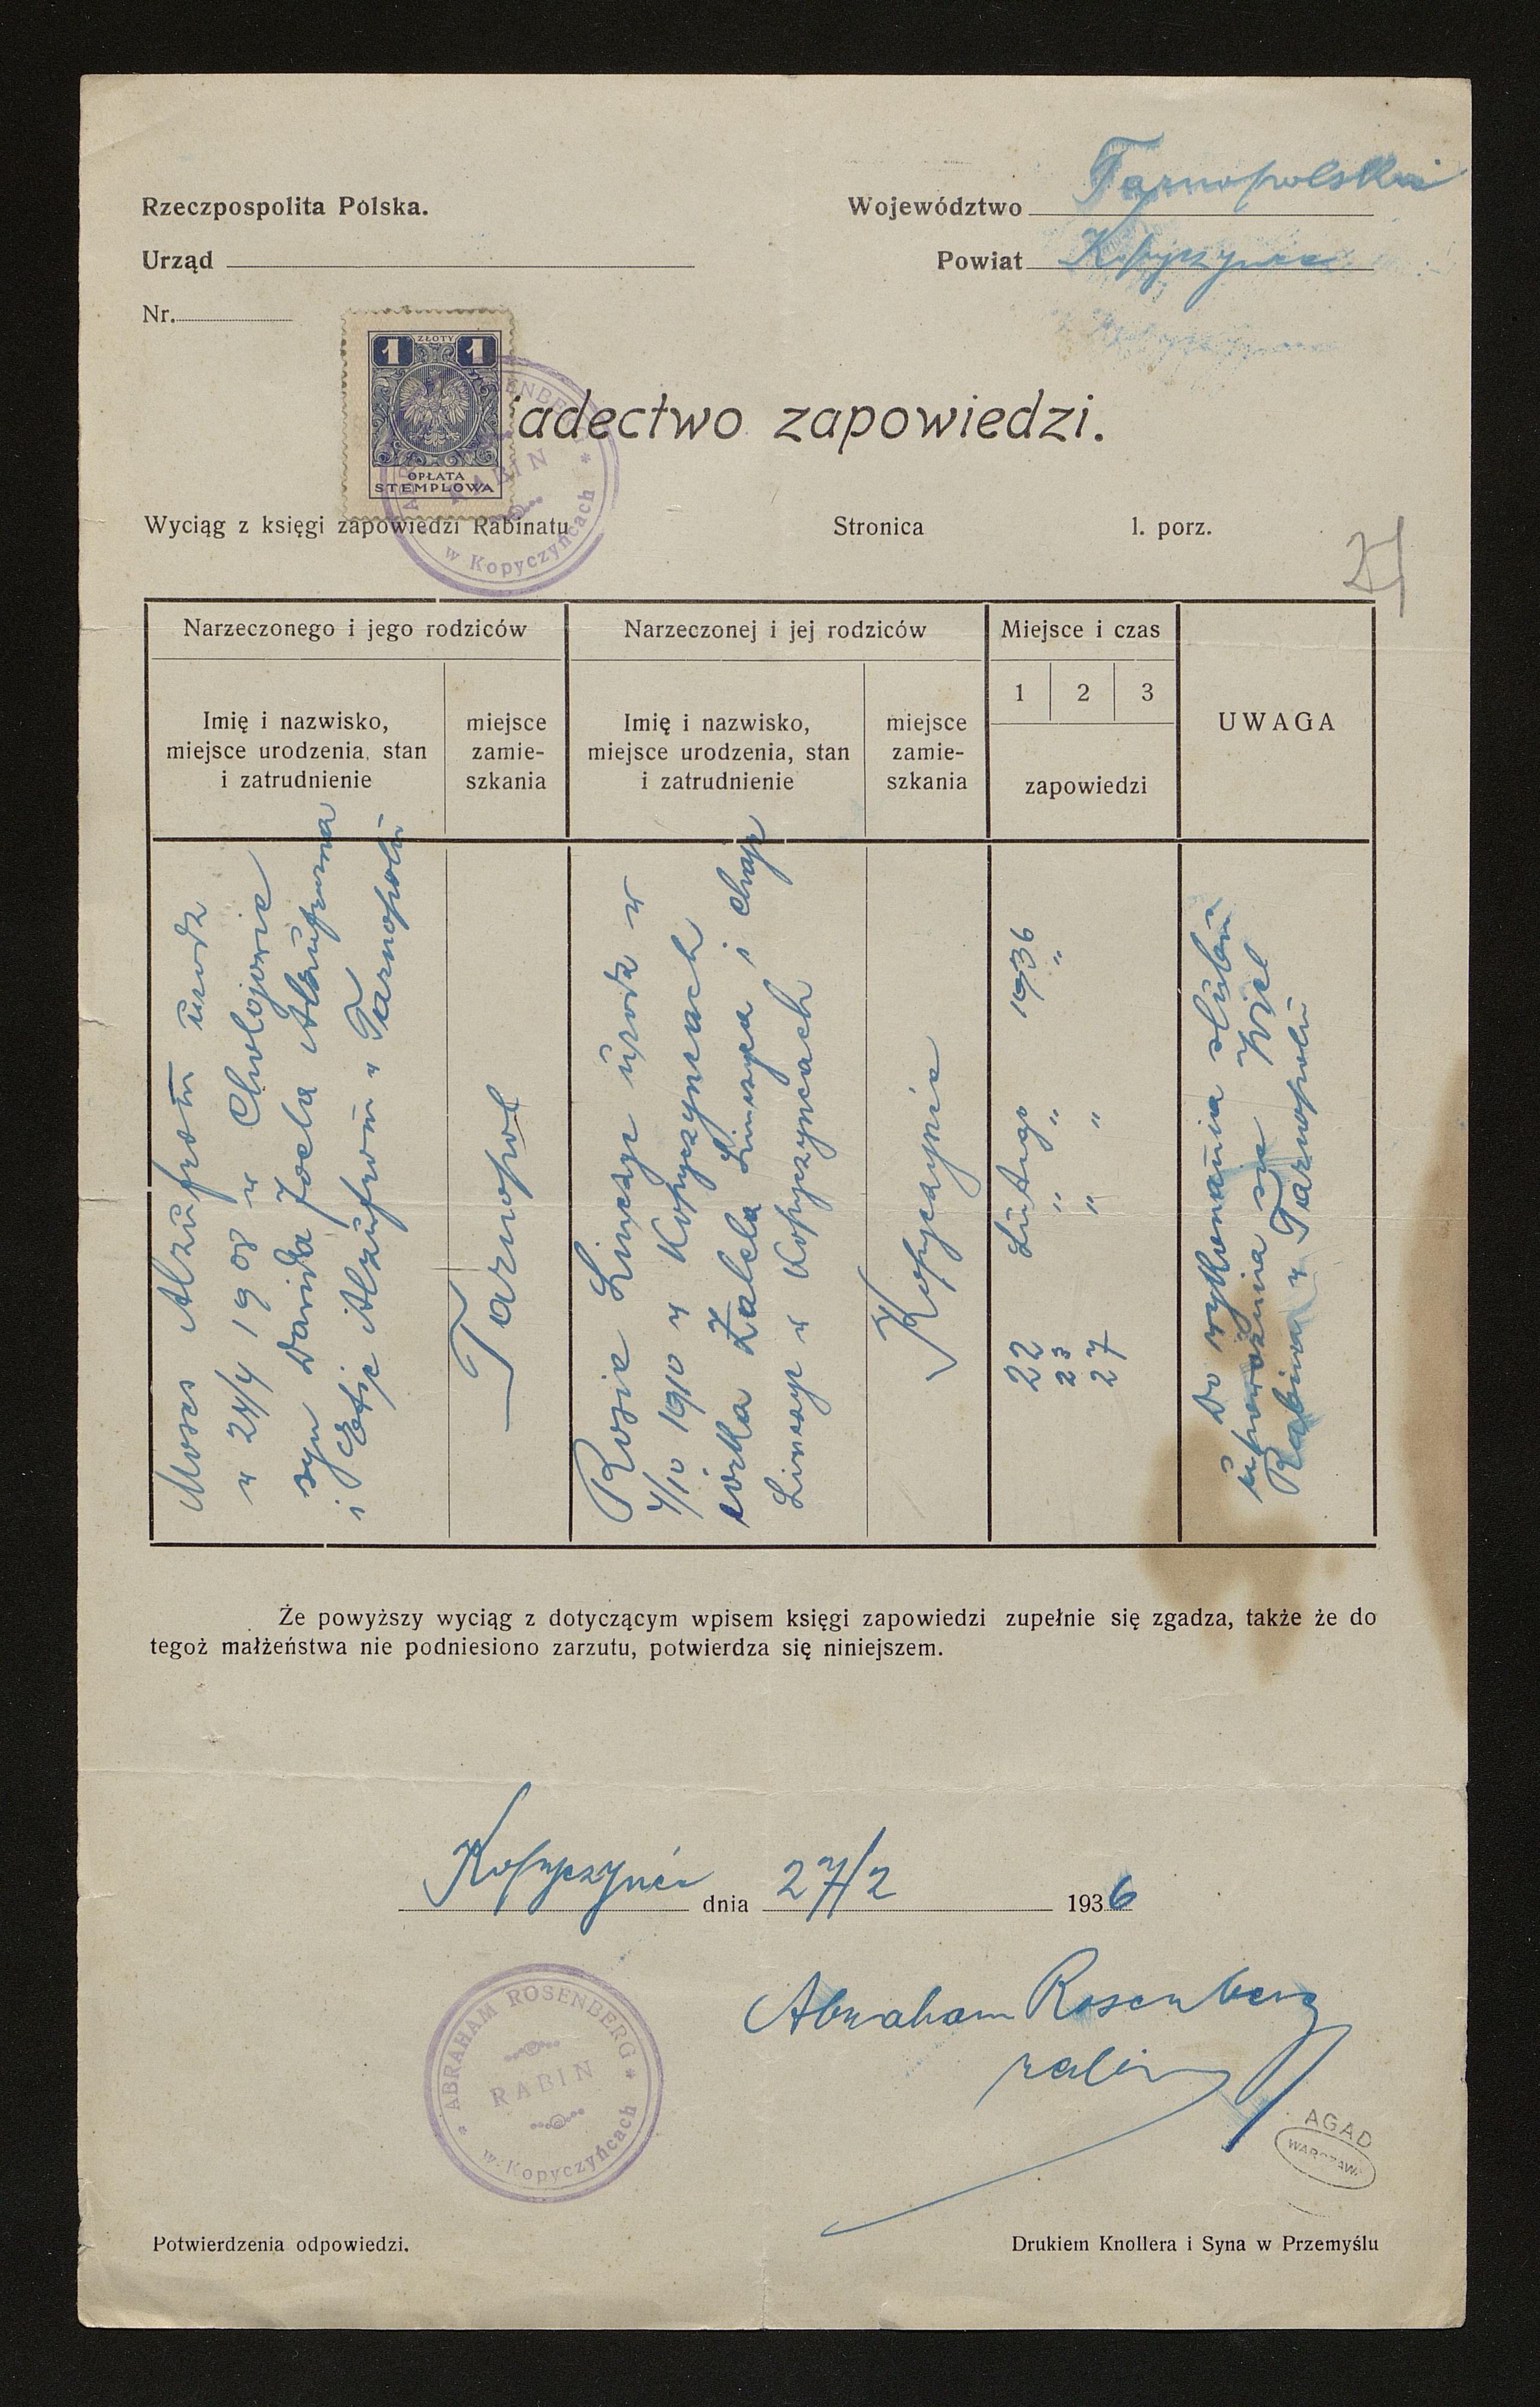 Rzeczpospolita Polska.
Województwo Tarnopolskie
Urząd
Powiat Kopyczyńce
Nr.
1 ZŁOTY 1
OPŁATA
STEMPLOWA
RABIN
w Kopyczyńcach
adectwo zapowiedzi.
Wyciąg z księgi zapowiedzi Rabinatu
Stronica
l. porz.
Narzeczonego i jego rodziców
Narzeczonej i jej rodziców
Miejsce i czas
1 2 3
zapowiedzi
UWAGA
Imię i nazwisko,
miejsce urodzenia, stan
i zatrudnienie
miejsce
zamie-
szkania
Imię i nazwisko,
miejsce urodzenia, stan
i zatrudnienie
miejsce
zamie-
szkania
Moses urodz
w 24/4 1908 w
syn Dawida Joela
i w Tarnopolu
Tarnopol
Rosie urodz w
4/10 1910 w Kopyczyńcach
córka i
w Kopyczyńcach
Kopyczyńce
22 Lutego 1936
23 " " "
27 " "
Do wykonania ślubu
upoważnia się Wiel
Rabina w Tarnopolu
Że powyższy wyciąg z dotyczącym wpisem księgi zapowiedzi zupełnie się zgadza, także że do
tegoż małżeństwa nie podniesiono zarzutu, potwierdza się niniejszem.
Kopyczyńce dnia 27/2 1936
Abraham Rosenberg
rabin
* ABRAHAM ROSENBERG *
RABIN
w Kopyczyńcach
AGAD
WARSZAWA
Potwierdzenia odpowiedzi.
Drukiem Knollera i Syna w Przemyślu